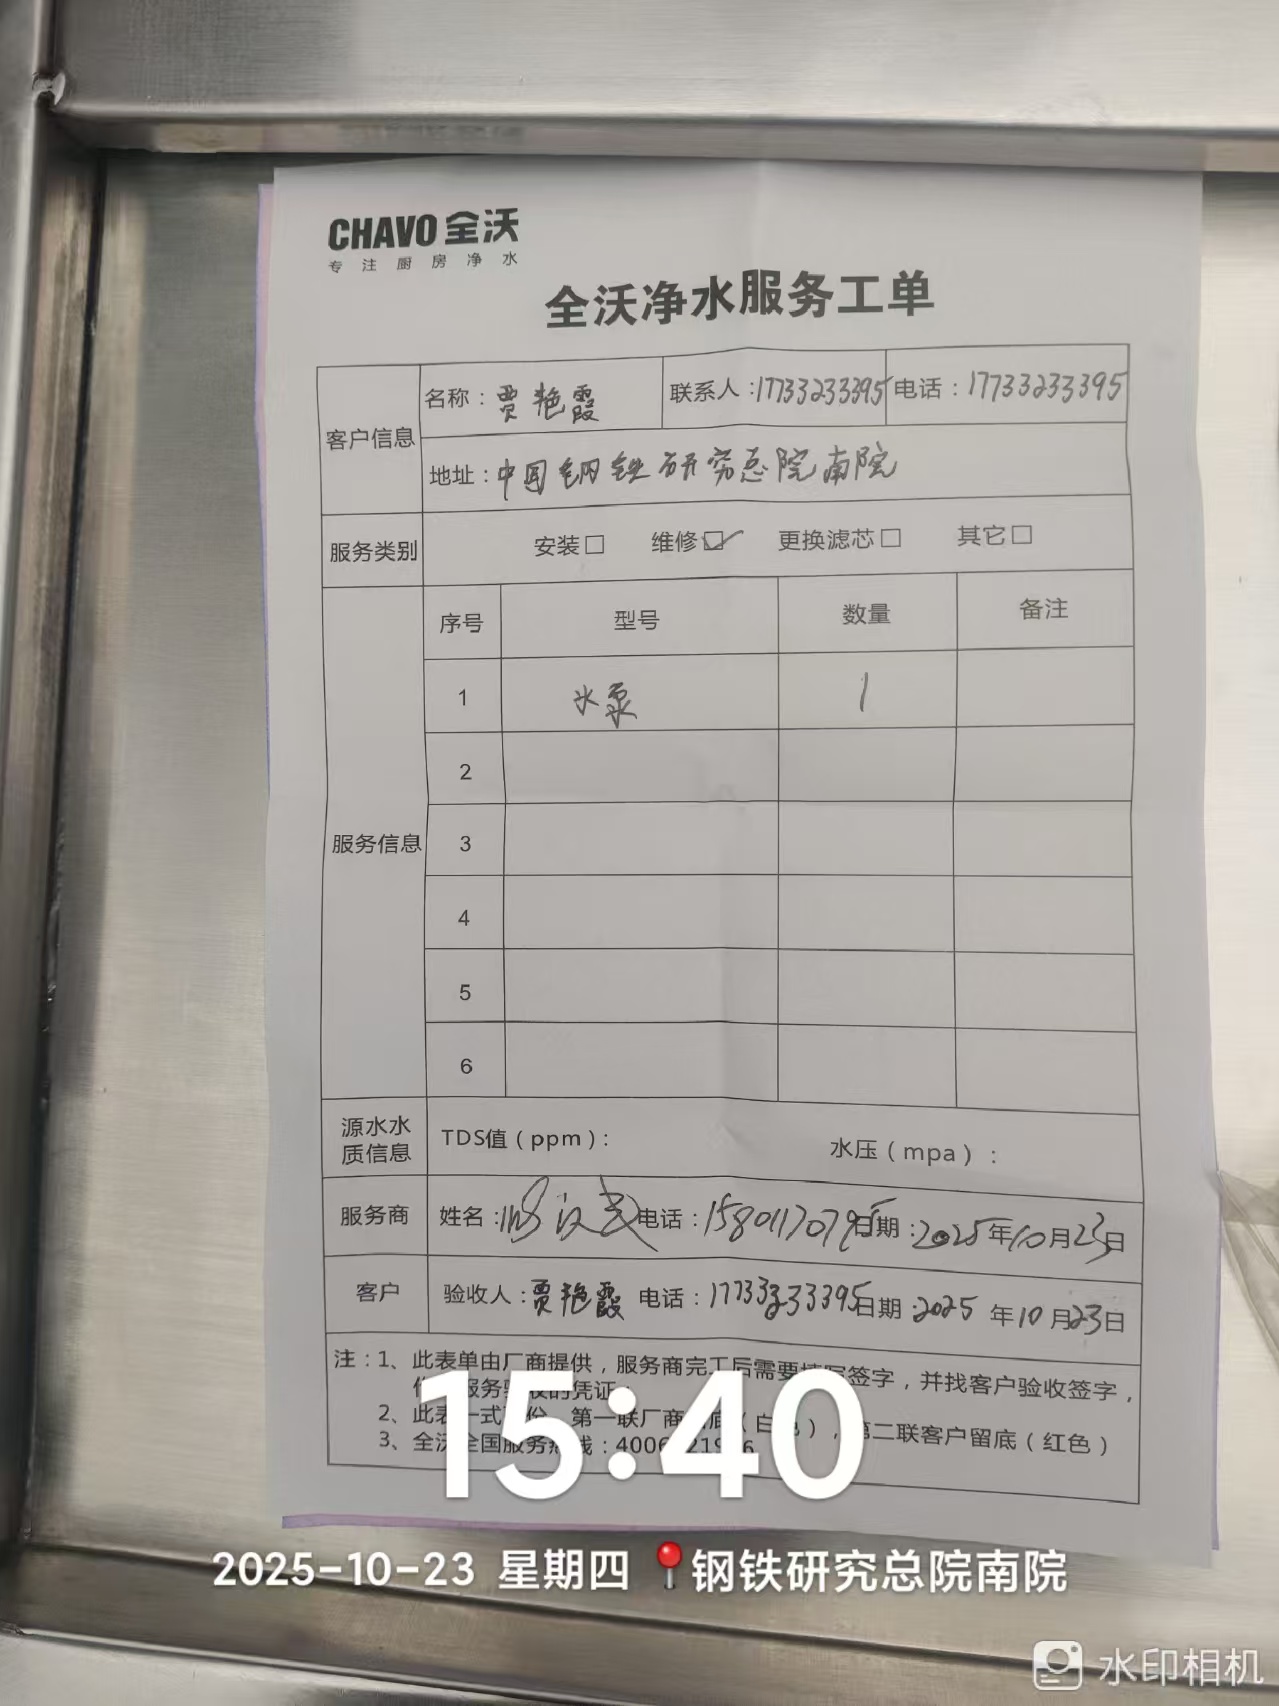 CHAVO 全沃
专注厨房净水
全沃净水服务工单
客户信息
名称：贾艳霞 联系人：17733233395 电话：17733233395
地址：中国钢铁研究总院南院
服务类别 安装□ 维修☑ 更换滤芯□ 其它□
服务信息
序号 型号 数量 备注
1 水泵 1
2
3
4
5
6
源水水质信息 TDS值（ppm）： 水压（mpa）：
服务商 姓名： 电话：1580117079 日期：2025年10月23日
客户 验收人：贾艳霞 电话：17733233395 日期：2025年10月23日
注：1、此表单由厂商提供，服务商完工后需要填写签字，并找客户验收签字，
服务验收的凭证
2、此表一式 份，第一联厂商 底（白色），第二联客户留底（红色）
3、全沃全国服务热线：4006
15:40
2025-10-23 星期四 📍钢铁研究总院南院
水印相机